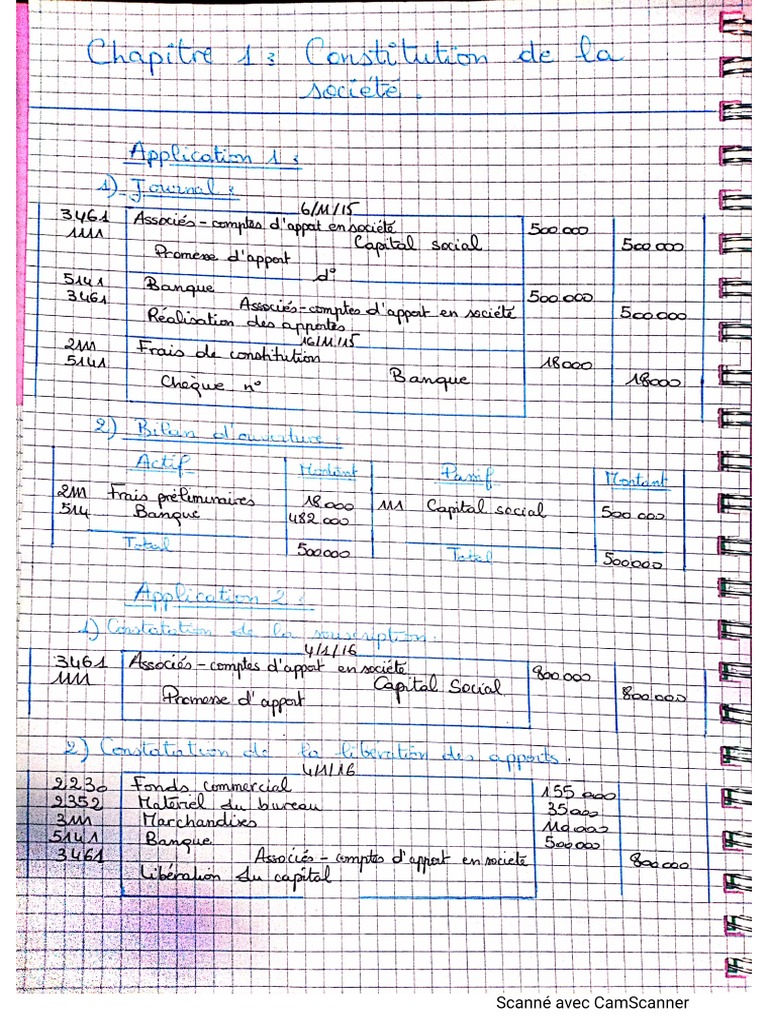 Chapitre 1 : Constitution de la
société.
Application 1 :
1) Journal :
6/11/15
3461 Associés - comptes d'apport en société 500.000
1111 Capital social 500.000
Promesse d'apport
d°
5141 Banque 500.000
3461 Associés - comptes d'apport en société 500.000
Réalisation des apportes
16/11/15
2111 Frais de constitution 18000
5141 Banque 18000
Chèque n°
2) Bilan d'ouverture :
Actif Montant Passif Montant
2111 Frais préliminaires 18.000 1111 Capital social 500.000
514 Banque 482.000
Total 500000 Total 500000
Application 2 :
1) Constatation de la souscription.
4/1/16
3461 Associés - comptes d'apport en société 800.000
1111 Capital Social 800.000
Promesse d'apport
2) Constatation de la libération des apports.
4/1/16
2230 Fonds commercial 155 000
2352 Matériel du bureau 35000
3111 Marchandixes 110.000
5141 Banque 500000
3461 Associés - comptes d'apport en société 800.000
Libération du capital
Scanné avec CamScanner